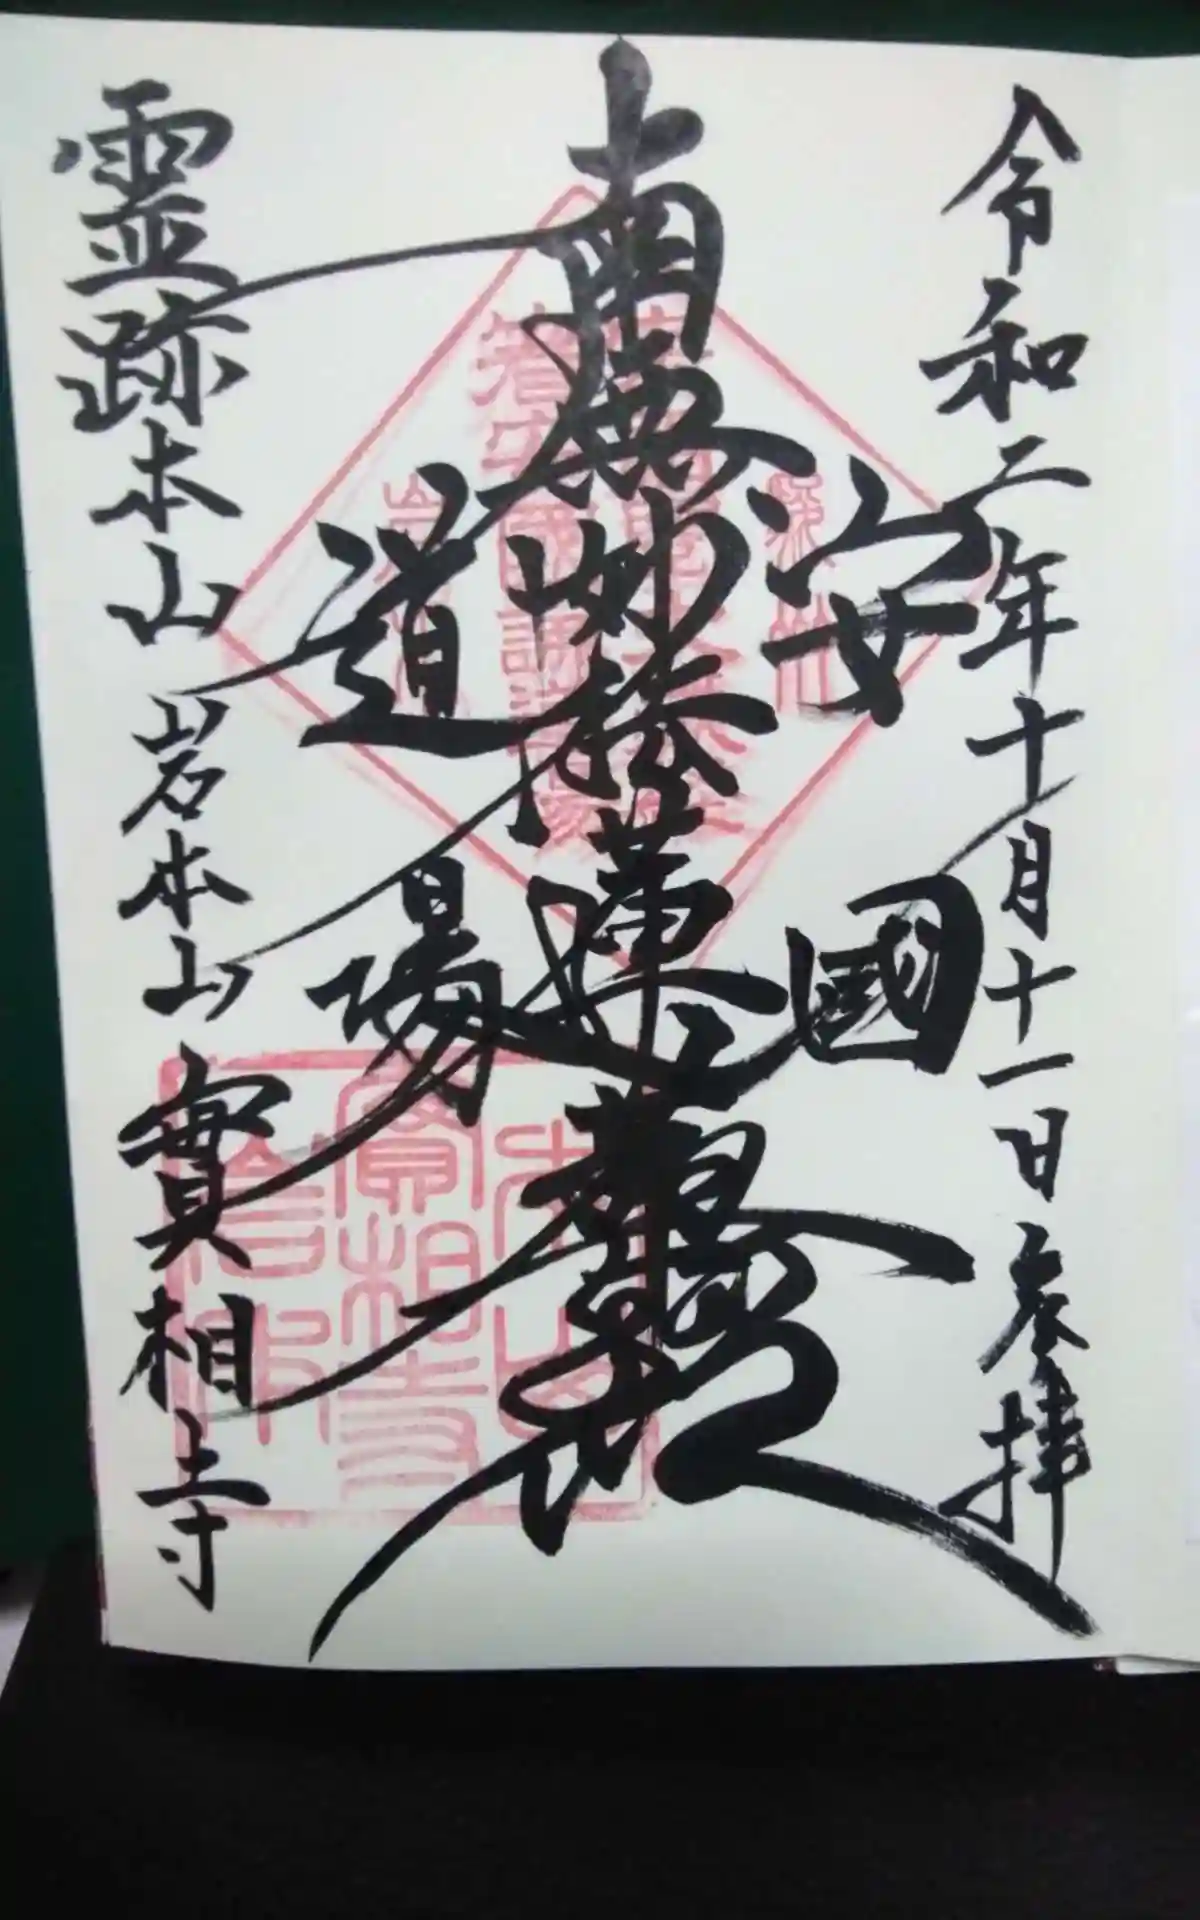 令和二年十月十一日参拝
安國
南無妙法蓮華経
道場
霊跡本山 岩本山 實相寺